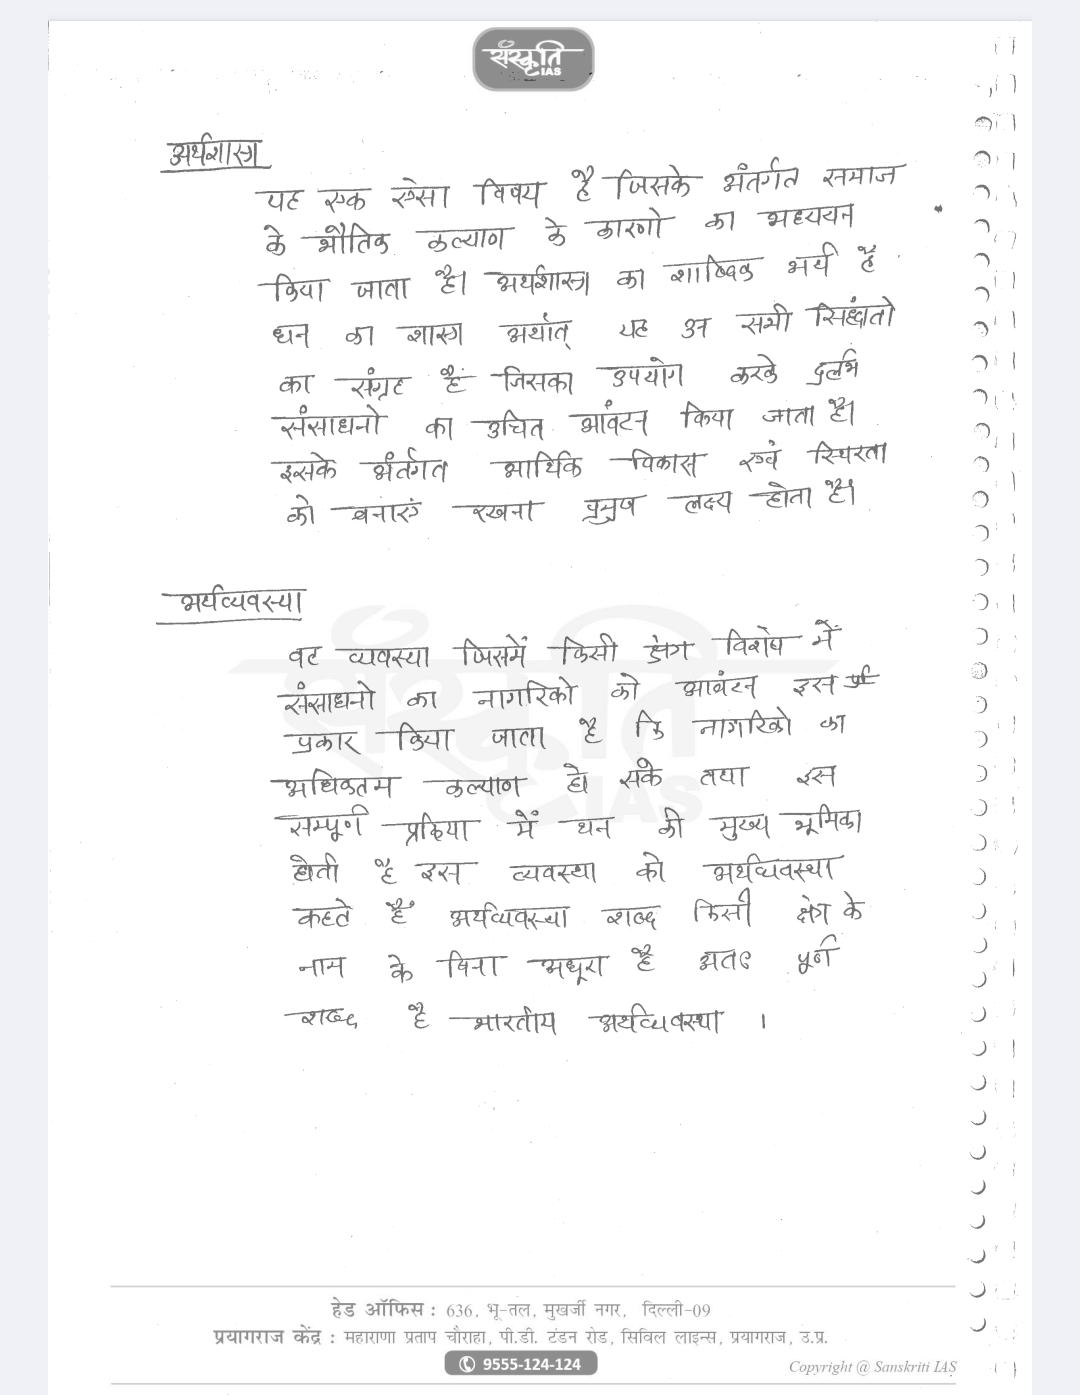 संस्कृति
IAS
अर्थशास्त्र
यह एक ऐसा विषय है जिसके अंतर्गत समाज
के भौतिक कल्याण के कारणो का अध्ययन
किया जाता है। अर्थशास्त्र का शाब्दिक अर्थ है
धन का शास्त्र अर्थात् यह उन सभी सिद्धांतो
का संग्रह है जिसका उपयोग करके दुर्लभ
संसाधनो का उचित आवंटन किया जाता है।
इसके अंर्तगत आर्थिक विकास एवं स्थिरता
को बनाएं रखना प्रमुख लक्ष्य होता है।
अर्थव्यवस्था
वह व्यवस्था जिसमें किसी क्षेत्र विशेष में
संसाधनो का नागरिको को आवंटन इस
प्रकार किया जाता है कि नागरिको का
अधिकतम कल्याण हो सके तथा इस
सम्पूर्ण प्रक्रिया में धन की मुख्य भूमिका
होती है इस व्यवस्था को अर्थव्यवस्था
कहते हैं अर्थव्यवस्था शब्द किसी क्षेत्र के
नाम के बिना अधूरा है अतः पूर्ण
शब्द है भारतीय अर्थव्यवस्था ।
हेड ऑफिस : 636, भू-तल, मुखर्जी नगर, दिल्ली-09
प्रयागराज केंद्र : महाराणा प्रताप चौराहा, पी.डी. टंडन रोड, सिविल लाइन्स, प्रयागराज, उ.प्र.
9555-124-124
Copyright @ Sanskriti IAS